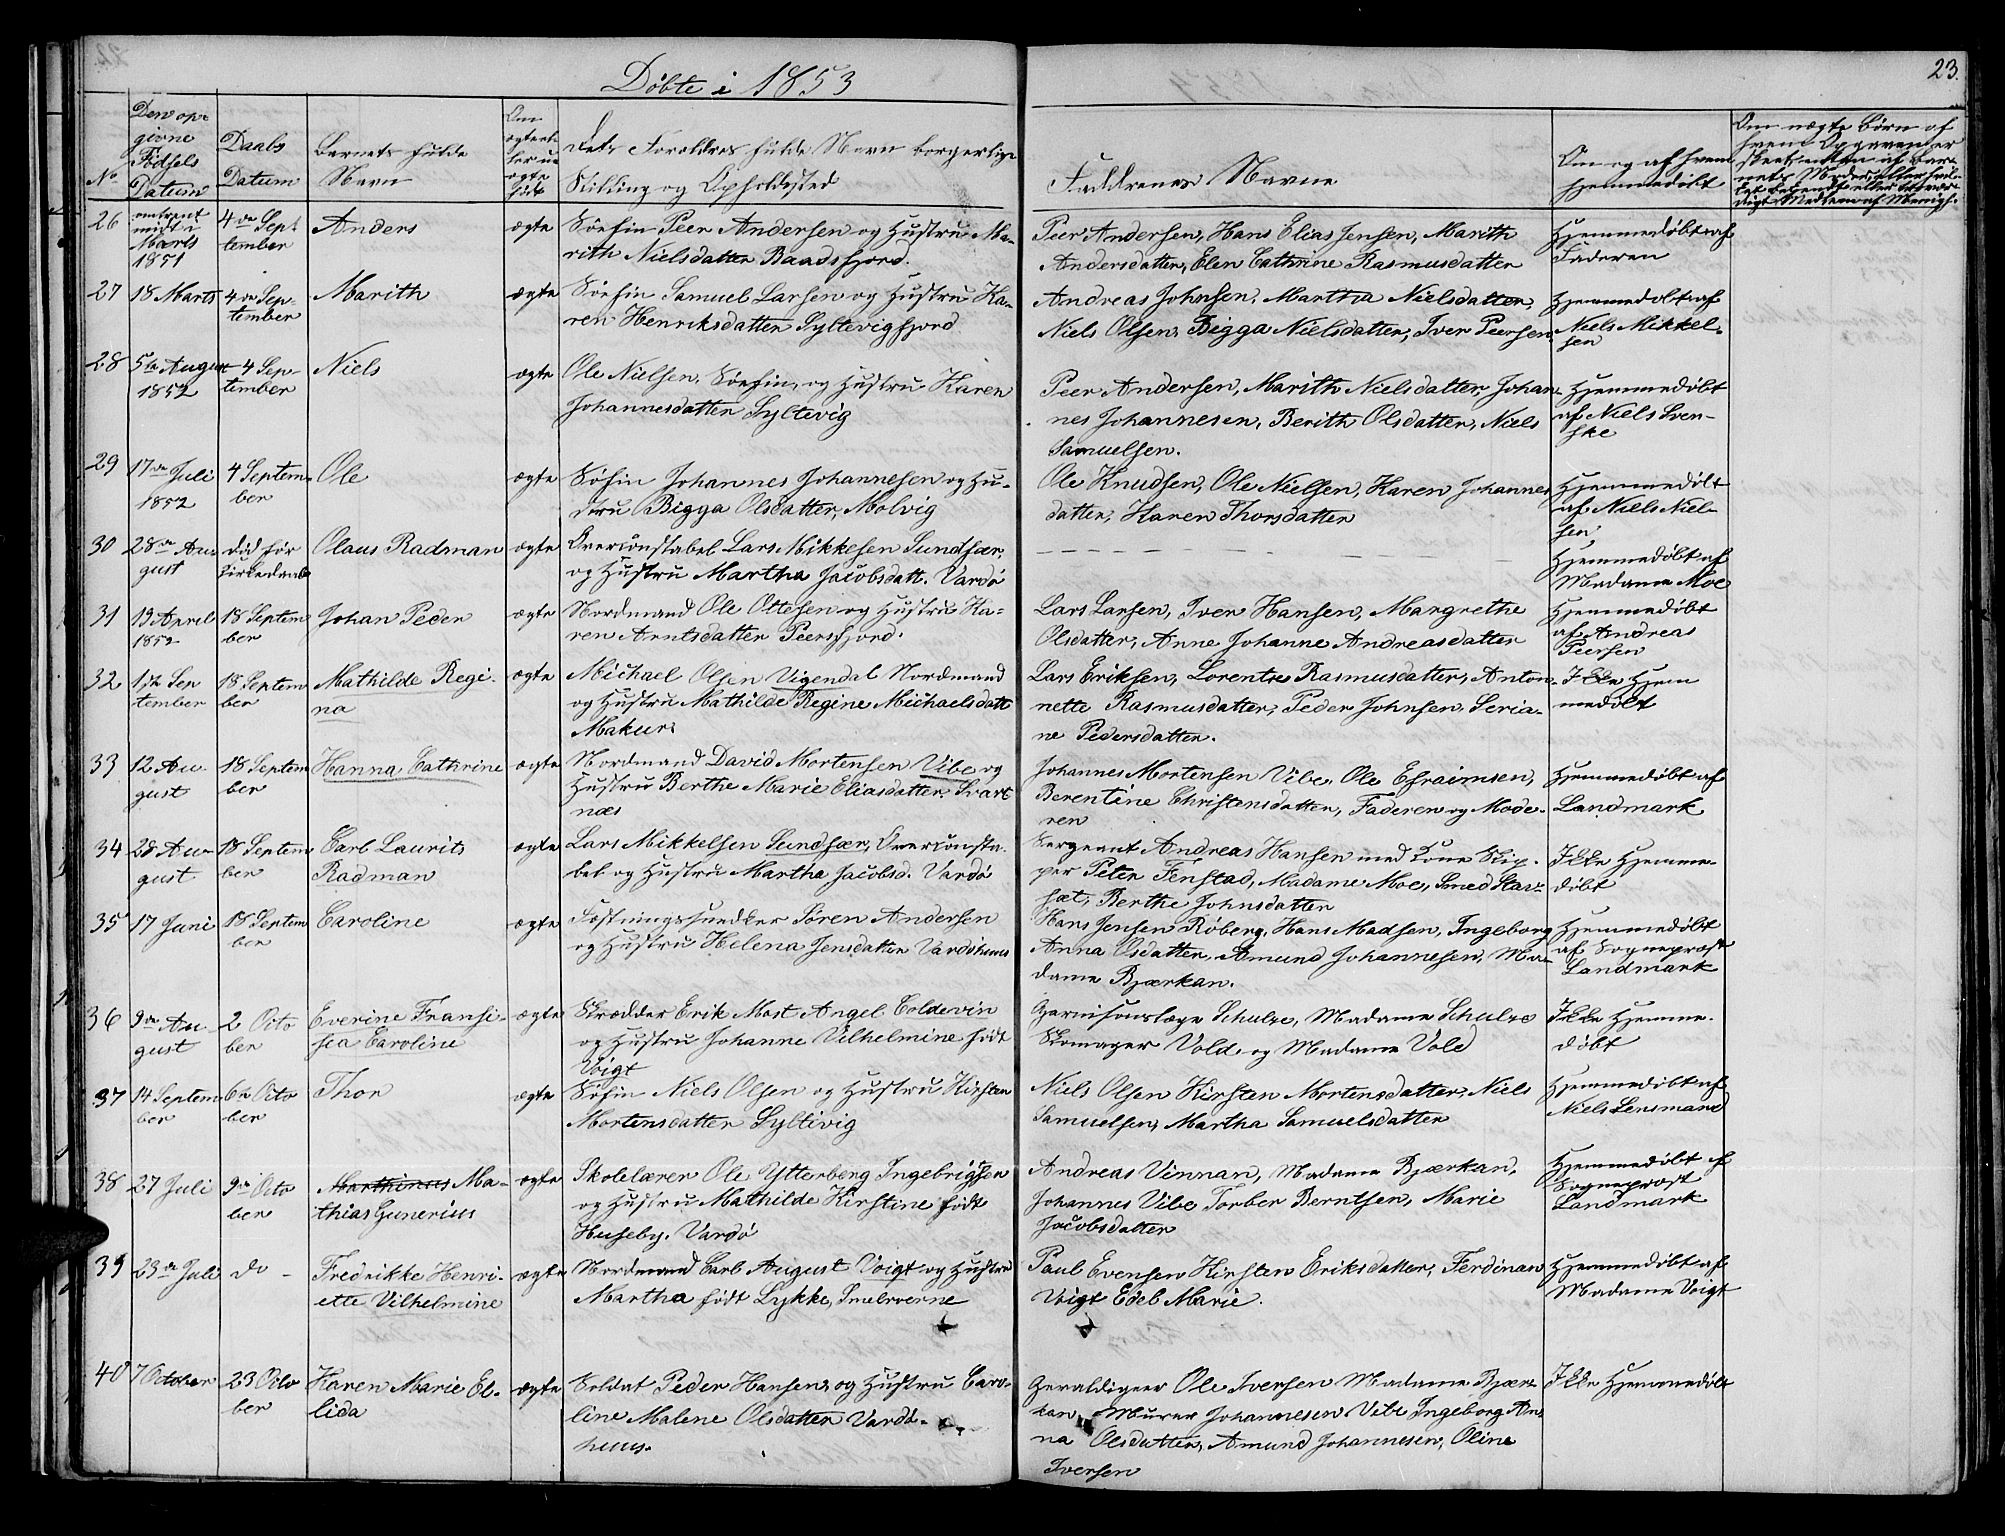 Døbte i 1853
23.
No
Den op-
givne
Fødsels
Datum
Daabs
Datum
Barnets fulde
Navn
Om
ægte el-
ler u-
ægte
født
Dets Forældres fulde Navn borgerlige
Stilling og Opholdssted
Faddernes Navne
Om og af hvem
hjemmedøbt
Om uægte Børn af
hvem Opgaven er
26 omtrent midt i Marts 1851 4de September Anders ægte Søefin Peer Andersen og Hustru Ma-
rith Nielsdatter Baadsfjord.
Peer Andersen, Hans Elias Jensen, Marith
Andersdatter, Elen Cathrine Rasmusdatter
Hjemmedøbt af
Faderen
27 18 Marts 4de Sep-
tember Marith ægte Søefin Samuel Larsen og Hustru Ka-
ren Henriksdatter Syltevigfjord
Andreas Johnsen, Martha Nielsdatter,
Niels Olsen, Bigga Nielsdatter, Iver Peersen
Hjemmedøbt af
Niels Mikkel-
sen
28 5te August
1852 4 Sep-
tember Niels ægte Ole Nielsen, Søefin, og Hustru Karen
Johannesdatter Syltevig
Peer Andersen, Marith Nielsdatter, Johan-
nes Johannesen, Berith Olsdatter, Niels
Samuelsen.
Hjemmedøbt
af Niels Sven-
ske
29 17de Juli
1852 4 Septem-
ber Ole ægte Søfin Johannes Johannesen og Hu-
stru Bigga Olsdatter, Molvig
Ole Knudsen, Ole Nielsen, Karen Johannes
datter, Karen Thorsdatter
Hjemmedøbt
af Niels Niel-
sen
30 28de Au-
gust død før
Kirkedaab Olaus Radman ægte Overconstabel Lars Mikkelsen Sundfær,
og Hustru Martha Jacobsdatt. Vardø
Hjemmedøbt af
Madame Moe
31 13 April
1852 18 Septem
ber Johan Peder ægte Nordmand Ole Ottesen og Hustru Ka-
ren Arntsdatter Peersfjord.
Lars Larsen, Iver Hansen, Margrethe
Olsdatter, Anne Johanne Andreasdatter
Hjemmedøbt
af Andreas
Peersen
32 1ste Sep
tember 18 Septem
ber Mathilde Regi-
na ægte Michael Olsen Vigendal Nordmand
og Hustru Mathilde Regine Michaelsdatt
Makur.
Lars Eriksen, Lorentse Rasmusdatter, Anton-
nette Rasmusdatter, Peder Johnsen, Seria-
ne Pedersdatter.
Ikke Hjem
medøbt
33 12 Au-
gust 18 Septem
ber Hanna Cathrine ægte Nordmand David Mortensen Vibe og
Hustru Berthe Marie Eliasdatter. Svart
næs
Johannes Mortensen Vibe, Ole Efraimsen,
Berentine Christensdatter, Faderen og Mode-
ren
Hjemmedøbt af
Landmark
34 28 Au-
gust 18 Septem
ber Carl Laurits
Radman ægte Lars Mikkelsen Sundfær, Overconsta-
bel og Hustru Martha Jacobsd. Vardø
Sergeant Andreas Hansen med Kone Skip-
per Peter Fenstad, Madame Moe, Smed Star-
sæt, Berthe Johnsdatter
Ikke Hjemme-
døbt
35 17 Juni 18 Septem
ber Caroline ægte Søren Andersen
og Hustru Helena Jensdatter Vardøhuus
Hans Jensen Røberg, Hans Madsen, Ingeborg
Anna Olsdatter, Amund Johannesen, Ma-
dame Bjærkan.
Hjemmedøbt
af Sognepræst
Landmark
36 9de Au-
gust 2 Octo
ber Everine Fransi-
sca Caroline ægte Skrædder Erik Most Angel Coldevin
og Hustru Johanne Vilhelmine født
Voigt
Garnisonslæge Schulze, Madame Schulze
Skomager Vold og Madame Vold
Ikke Hjemme-
døbt
37 14 Septem
ber 6te Octo
ber Thor ægte Søfin Niels Olsen og Hustru Kirsten
Mortensdatter Syltivig
Niels Olsen Kirsten Mortensdatter, Niels
Samuelsen, Martha Samuelsdatter
Hjemmedøbt af
Niels Lensmand
38 27 Juli 9de Octo
ber Marthinus Ma-
thias Gunerius ægte Skolelærer Ole Ytterberg Ingebrigtsen
og Hustru Mathilde Kirstine født
Huseby. Vardø
Andreas Vinnan, Madame Bjærkan,
Johannes Vibe Torber Berntsen, Marie
Jacobsdatter
Hjemmedøbt af
Sognepræst
Landmark
39 23de Juli do Fredrikke Henri-
ette Vilhelmine ægte Nordmand Carl August Voigt og Hustru
Martha født Lykke,
Paul Evensen Kirsten Eriksdatter, Ferdinan
Voigt Edel Marie.
Hjemmedøbt af
Madame Voigt
40 7 October 23 Octo
ber Karen Marie El-
lida ægte Soldat Peder Hansen, og Hustru Caro-
line Malene Olsdatter Vardø-
huus.
Ole Iversen Madame Bjær-
kan, Murer Johannesen Vibe Ingeborg An-
na Olsdatter, Amund Johannesen, Oline
Iversen
Ikke Hjemmedøbt